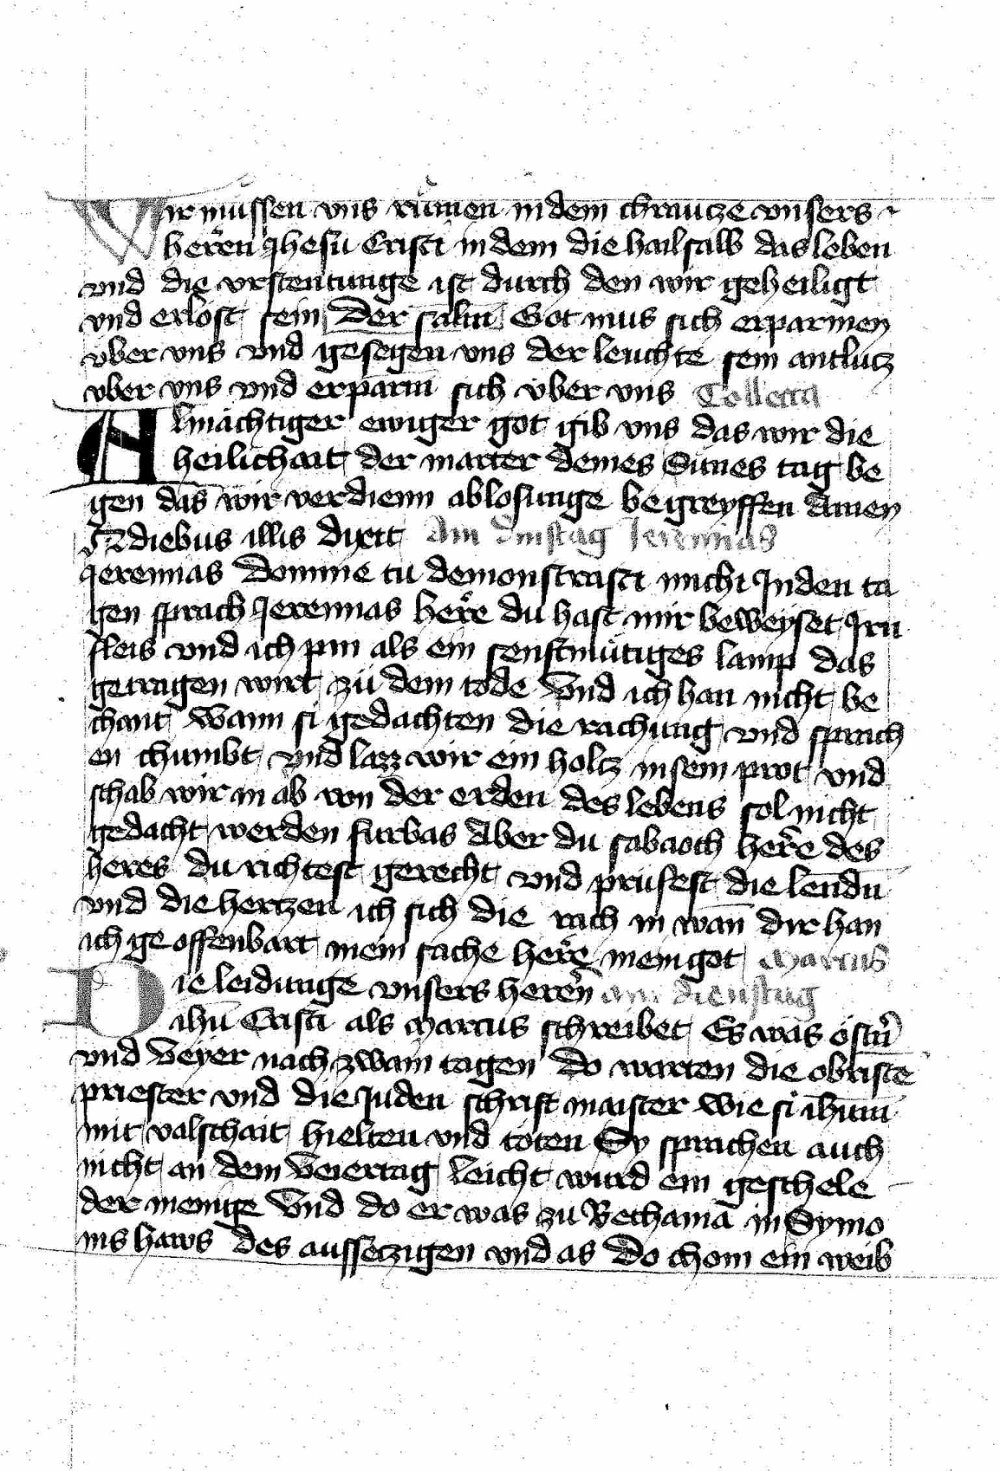 Wir mussen vns rumen in dem chrautze vnsers
herren Jhesu Cristi in dem die hailsalb das leben
vnd die vrstentunge ist durch den wir geheiligt
vnd erlost sein Der salm Got mus sich erparmen
vber vns vnd gesegen vns der leuchte sein antlutz
vber vns vnd erparm sich vber vns Collecta
Almachtiger ewiger got gib vns das wir die
heilichait der marter deines Sunes tag be
gen das wir verdienn ablosunge begreyffen Amen
In diebus illis dyxit Am dinstag Jeremias
Jeremias Domine tu demonstrasti michi In den ta
gen sprach Jeremias herre du hast mir beweyset Irn
fleis vnd ich pin als ein senftmutiges lamp das
getragen wirt zu dem tode Vnd ich han nicht be
chant wann si gedachten die rachung vnd sprach
en chumbt vnd lazz wir ein holtz in sein prot vnd
schab wir in ab von der erden des lebens sol nicht
gedacht werden furbas Aber du sabaoth herre des
heres du richtest gerecht vnd prufest die lendn̄
vnd die hertzen ich sich die rach in wan̄ dir han
ich ge offenbart mein sache herre mein got Marcus
Die leidunge vnsers herren am dienstag
ihū Cristi als Marcus schreibet Es was ostrn̄
vnd Veyer nach zwain tagen Do warten die obristē
priester vnd die Juden schrift maister wie si ihūm
mit valschait hielten vnd toten Sy sprachen auch
nicht an dem Veiertag leicht wurd ein geschele
der menige Vnd do er was zu Bethania in Symo
nis haws des aussetzigen vnd as Do chom ein weib